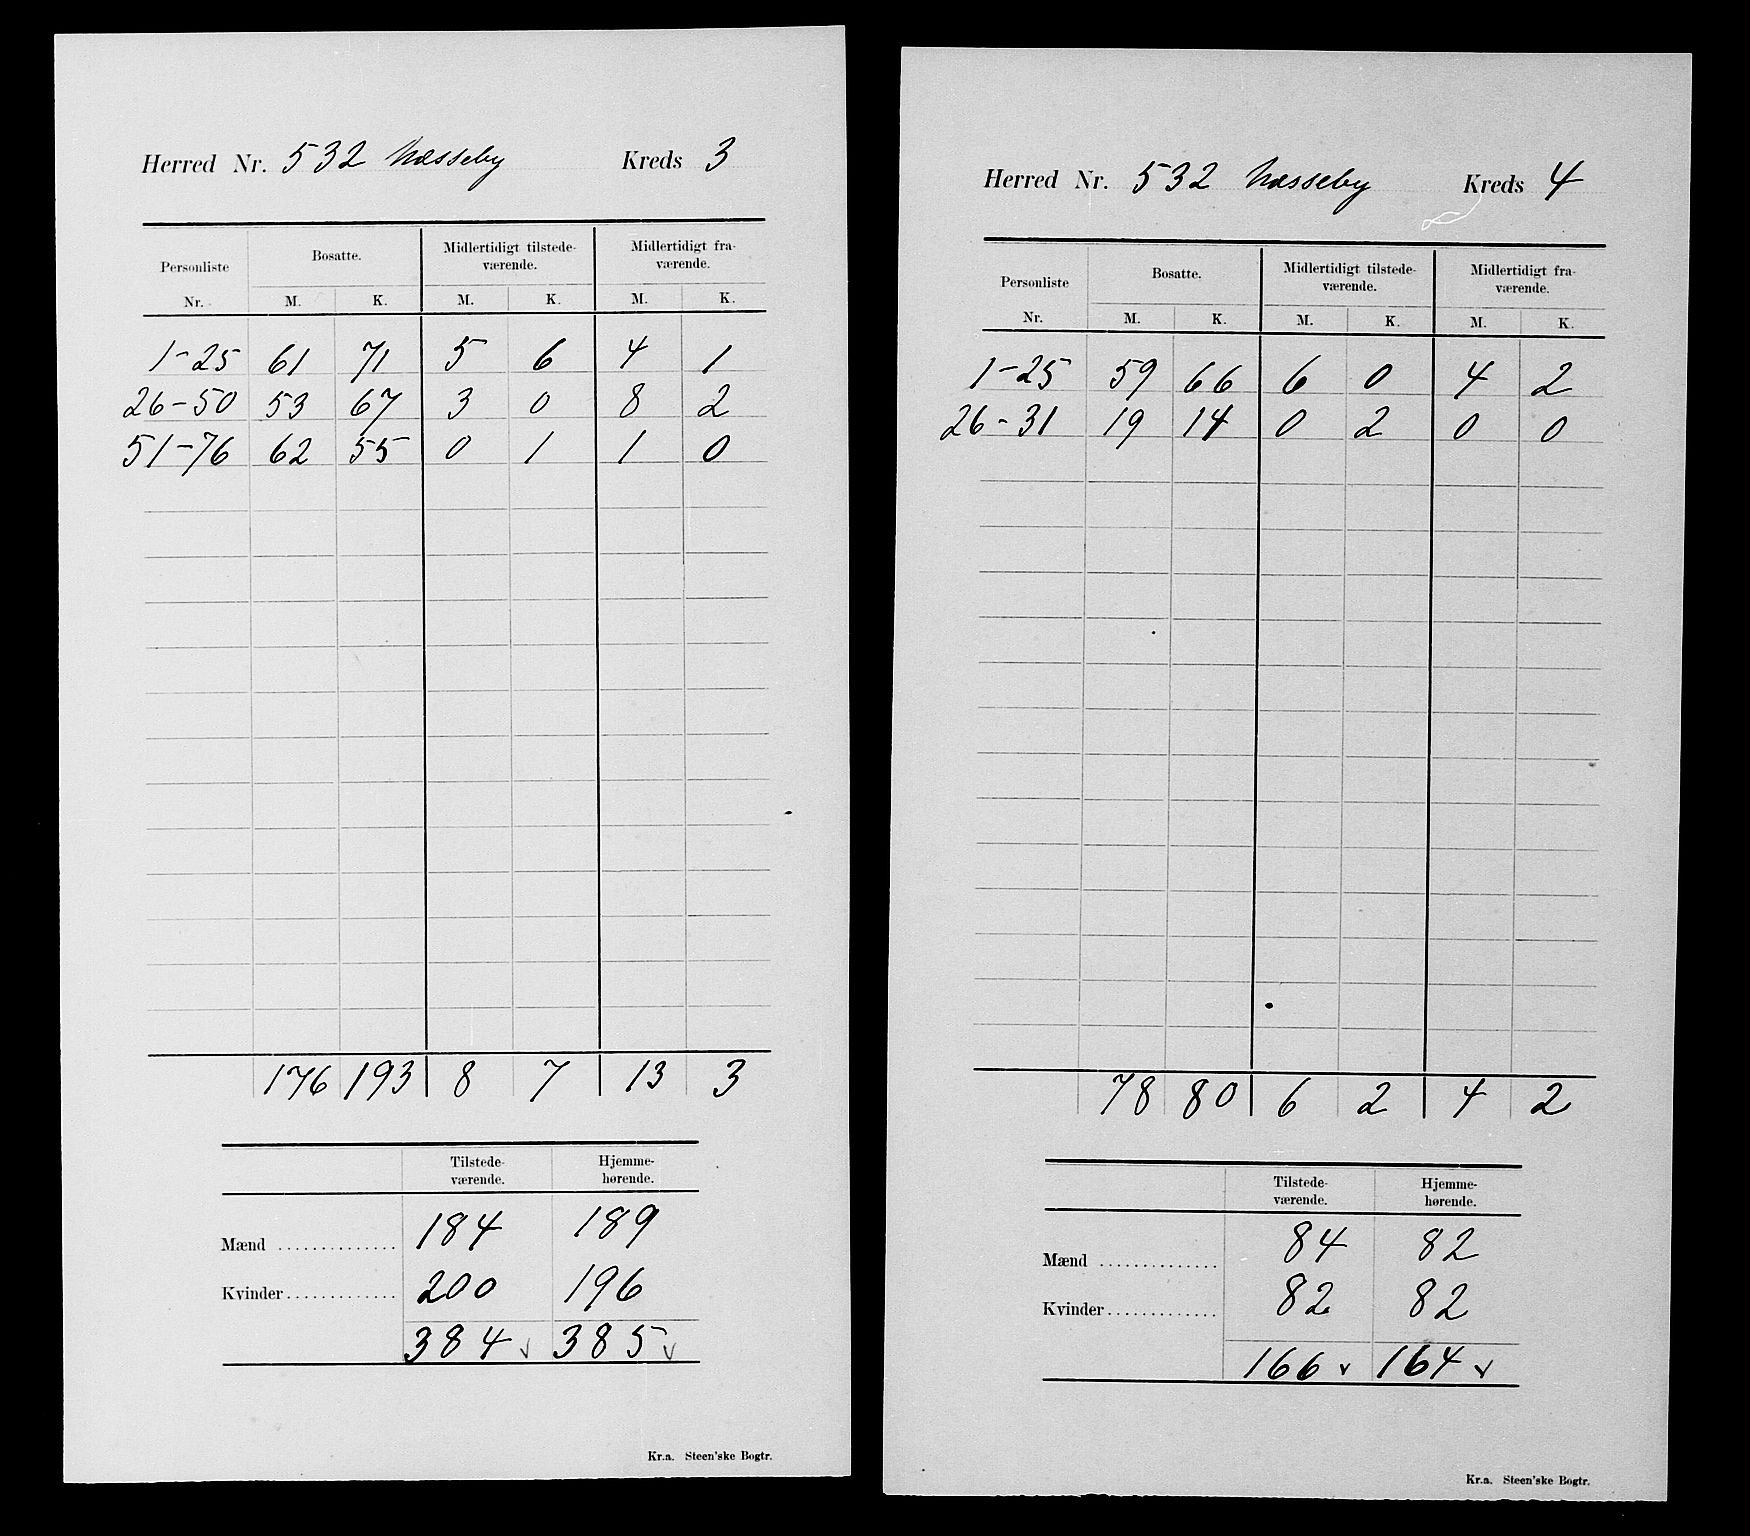 Herred Nr. 532 Næsseby Kreds 3
Personliste Nr. Bosatte. Midlertidigt tilstede-værende. Midlertidigt fra-værende.
M. K. M. K. M. K.
1-25 61 71 5 6 4 1
26-50 53 67 3 0 8 2
51-76 62 55 0 1 1 0
176 193 8 7 13 3
Tilstede-værende. Hjemme-hørende.
Mænd .............. 184 189
Kvinder ............. 200 196
384 385
Kr.a. Steen'ske Bogtr.
Herred Nr. 532 Næsseby Kreds 4
Personliste Nr. Bosatte. Midlertidigt tilstede-værende. Midlertidigt fra-værende.
M. K. M. K. M. K.
1-25 59 66 6 0 4 2
26-31 19 14 0 2 0 0
78 80 6 2 4 2
Tilstede-værende. Hjemme-hørende.
Mænd .............. 84 82
Kvinder ............. 82 82
166 164
Kr.a. Steen'ske Bogtr.